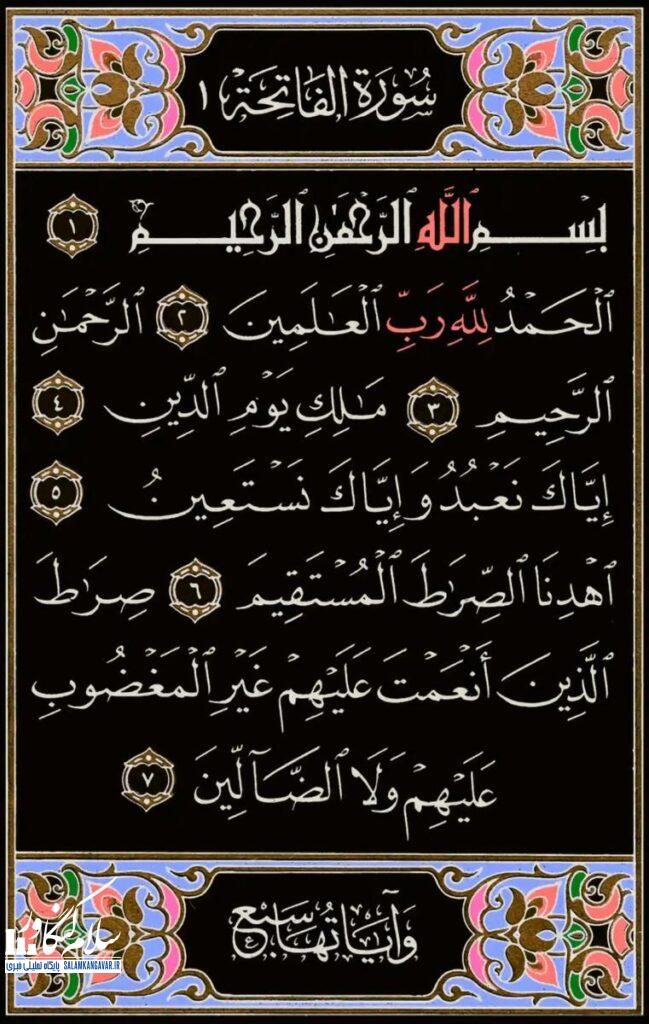 سُورَةُ الفَاتِحَةِ ١
بِسْمِ ٱللَّهِ ٱلرَّحْمَٰنِ ٱلرَّحِيمِ ١
ٱلْحَمْدُ لِلَّهِ رَبِّ ٱلْعَٰلَمِينَ ٢ ٱلرَّحْمَٰنِ
ٱلرَّحِيمِ ٣ مَٰلِكِ يَوْمِ ٱلدِّينِ ٤
إِيَّاكَ نَعْبُدُ وَإِيَّاكَ نَسْتَعِينُ ٥
ٱهْدِنَا ٱلصِّرَٰطَ ٱلْمُسْتَقِيمَ ٦ صِرَٰطَ
ٱلَّذِينَ أَنْعَمْتَ عَلَيْهِمْ غَيْرِ ٱلْمَغْضُوبِ
عَلَيْهِمْ وَلَا ٱلضَّآلِّينَ ٧
وَآيَاتُهَا سَبْعٌ
سلام کنگاور
پایگاه تحلیلی خبری SALAMKANGAVAR.IR